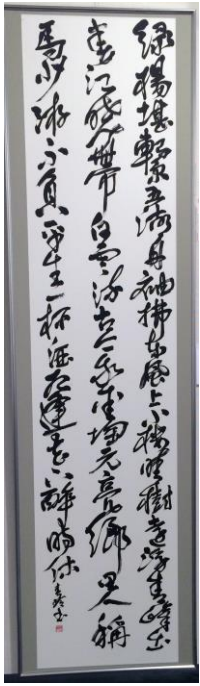 緑楊堪繋五湖舟袖拂東風上小樓晴樹遠浮青嶂出
春江曉帶白雲流古今我愛陶元亮郷里人稱
馬少游不負平生一杯酒相逢花下醉時休